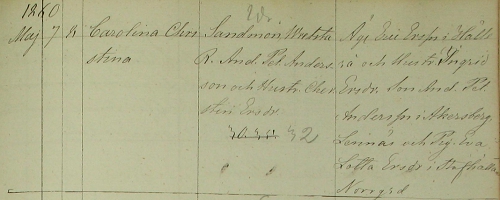 1860
Maj 7 8 Carolina Chri
stina
Sandmon
R. And. Pet. Anders
son och Hustr. Chri
stin Ersdr.
32
Äg. Eric Ersson i Häll
och Hustr. Ingrid
Ersdr. Son And. Pet.
Andersson i Åkersberg
och Pig. Eva
Lotta Ersdr. i
Norrg:d